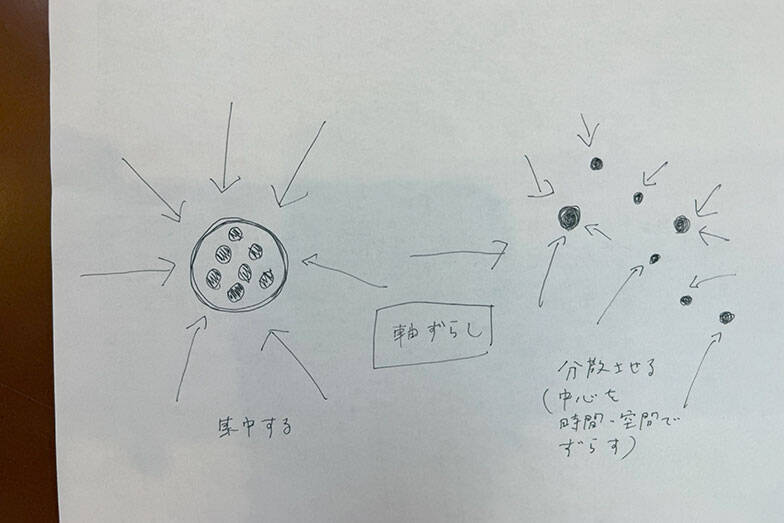 集中する
軸ずらし
分散させる
(中心を
時間・空間で
ずらす)